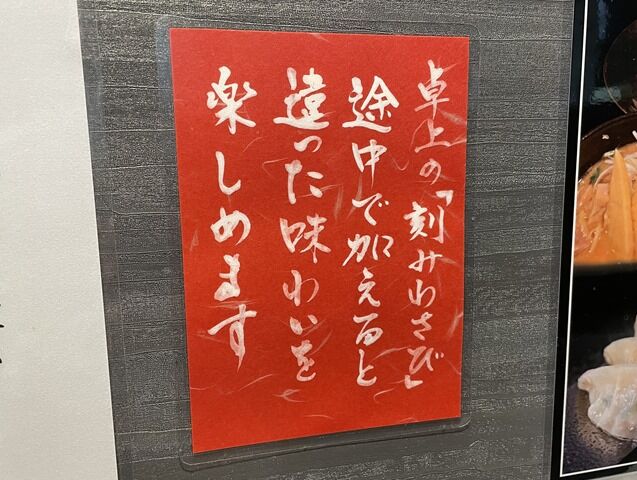 卓上の「刻みわさび」
途中で加えると
違った味わいを
楽しめます